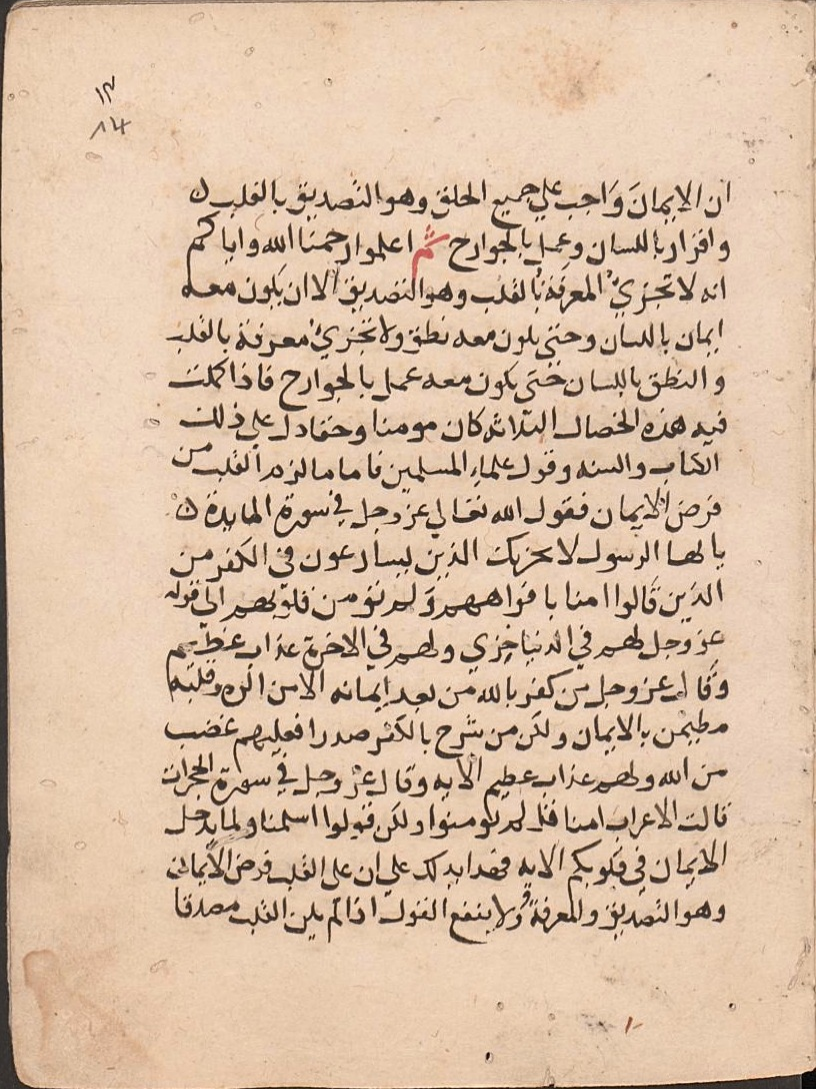 ١٣
٨٤
ان الايمان واجب علي جميع الخلق وهو التصديق بالقلب
واقرار باللسان وعمل بالجوارح ثم اعلموا رحمنا الله واياكم
انه لا تجزيء المعرفة بالقلب وهو التصديق الا ان يكون معه
ايمان باللسان وحتى يكون معه نطق ولا تجزيء معرفة بالقلب
والنطق باللسان حتى يكون معه عمل بالجوارح فاذا كملت
فيه هذه الخصال الثلاثه كان مومنا وحقا دل علي ذلك
الكتاب والسنه وقول علماء المسلمين فاما ما لزم القلب من
فرض الايمان فقول الله تعالي عز وجل في سورة المايدة
يا ايها الرسول لا يحزنك الذين يسارعون في الكفر من
الذين قالوا امنا بافواههم ولم تؤمن قلوبهم الى قوله
عز وجل لهم في الدنيا خزي ولهم في الاخرة عذاب عظيم
وقال عز وجل من كفر بالله من بعد ايمانه الا من اكره وقلبه
مطيمن بالايمان ولكن من شرح بالكفر صدرا فعليهم غضب
من الله ولهم عذاب عظيم الايه وقال عز وجل في سورة الحجرات
قالت الاعراب امنا قل لم تومنوا ولكن قولوا اسلمنا ولما يدخل
الايمان في قلوبكم الايه فهذا يدلك علي ان على القلب فرض الايمان
وهو التصديق والمعرفة ولا ينفع القول اذا لم يكن القلب مصدقا